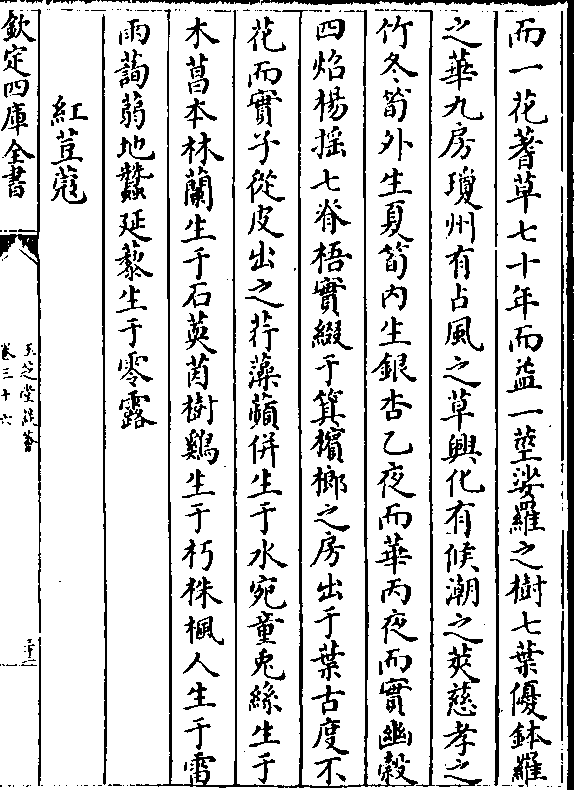 而一花蓍草七十年而益一莖娑羅之樹七葉優鉢羅
之華九房瓊州有占風之草興化有候潮之莢慈孝之
竹冬筍外生夏筍内生銀杏乙夜而華丙夜而實幽榖
四焰楊摇七脊梧實綴于箕檳榔之房出于葉古度不
花而實子從皮出之荇藻蘋併生于水宛童兎絲生于
木菖本林蘭生于石萸茵樹鷄生于朽株楓人生于雷
雨蒟蒻地蠶延藜生于零露
紅荳蔻
欽定四庫全書
玉芝堂談薈
卷三十六